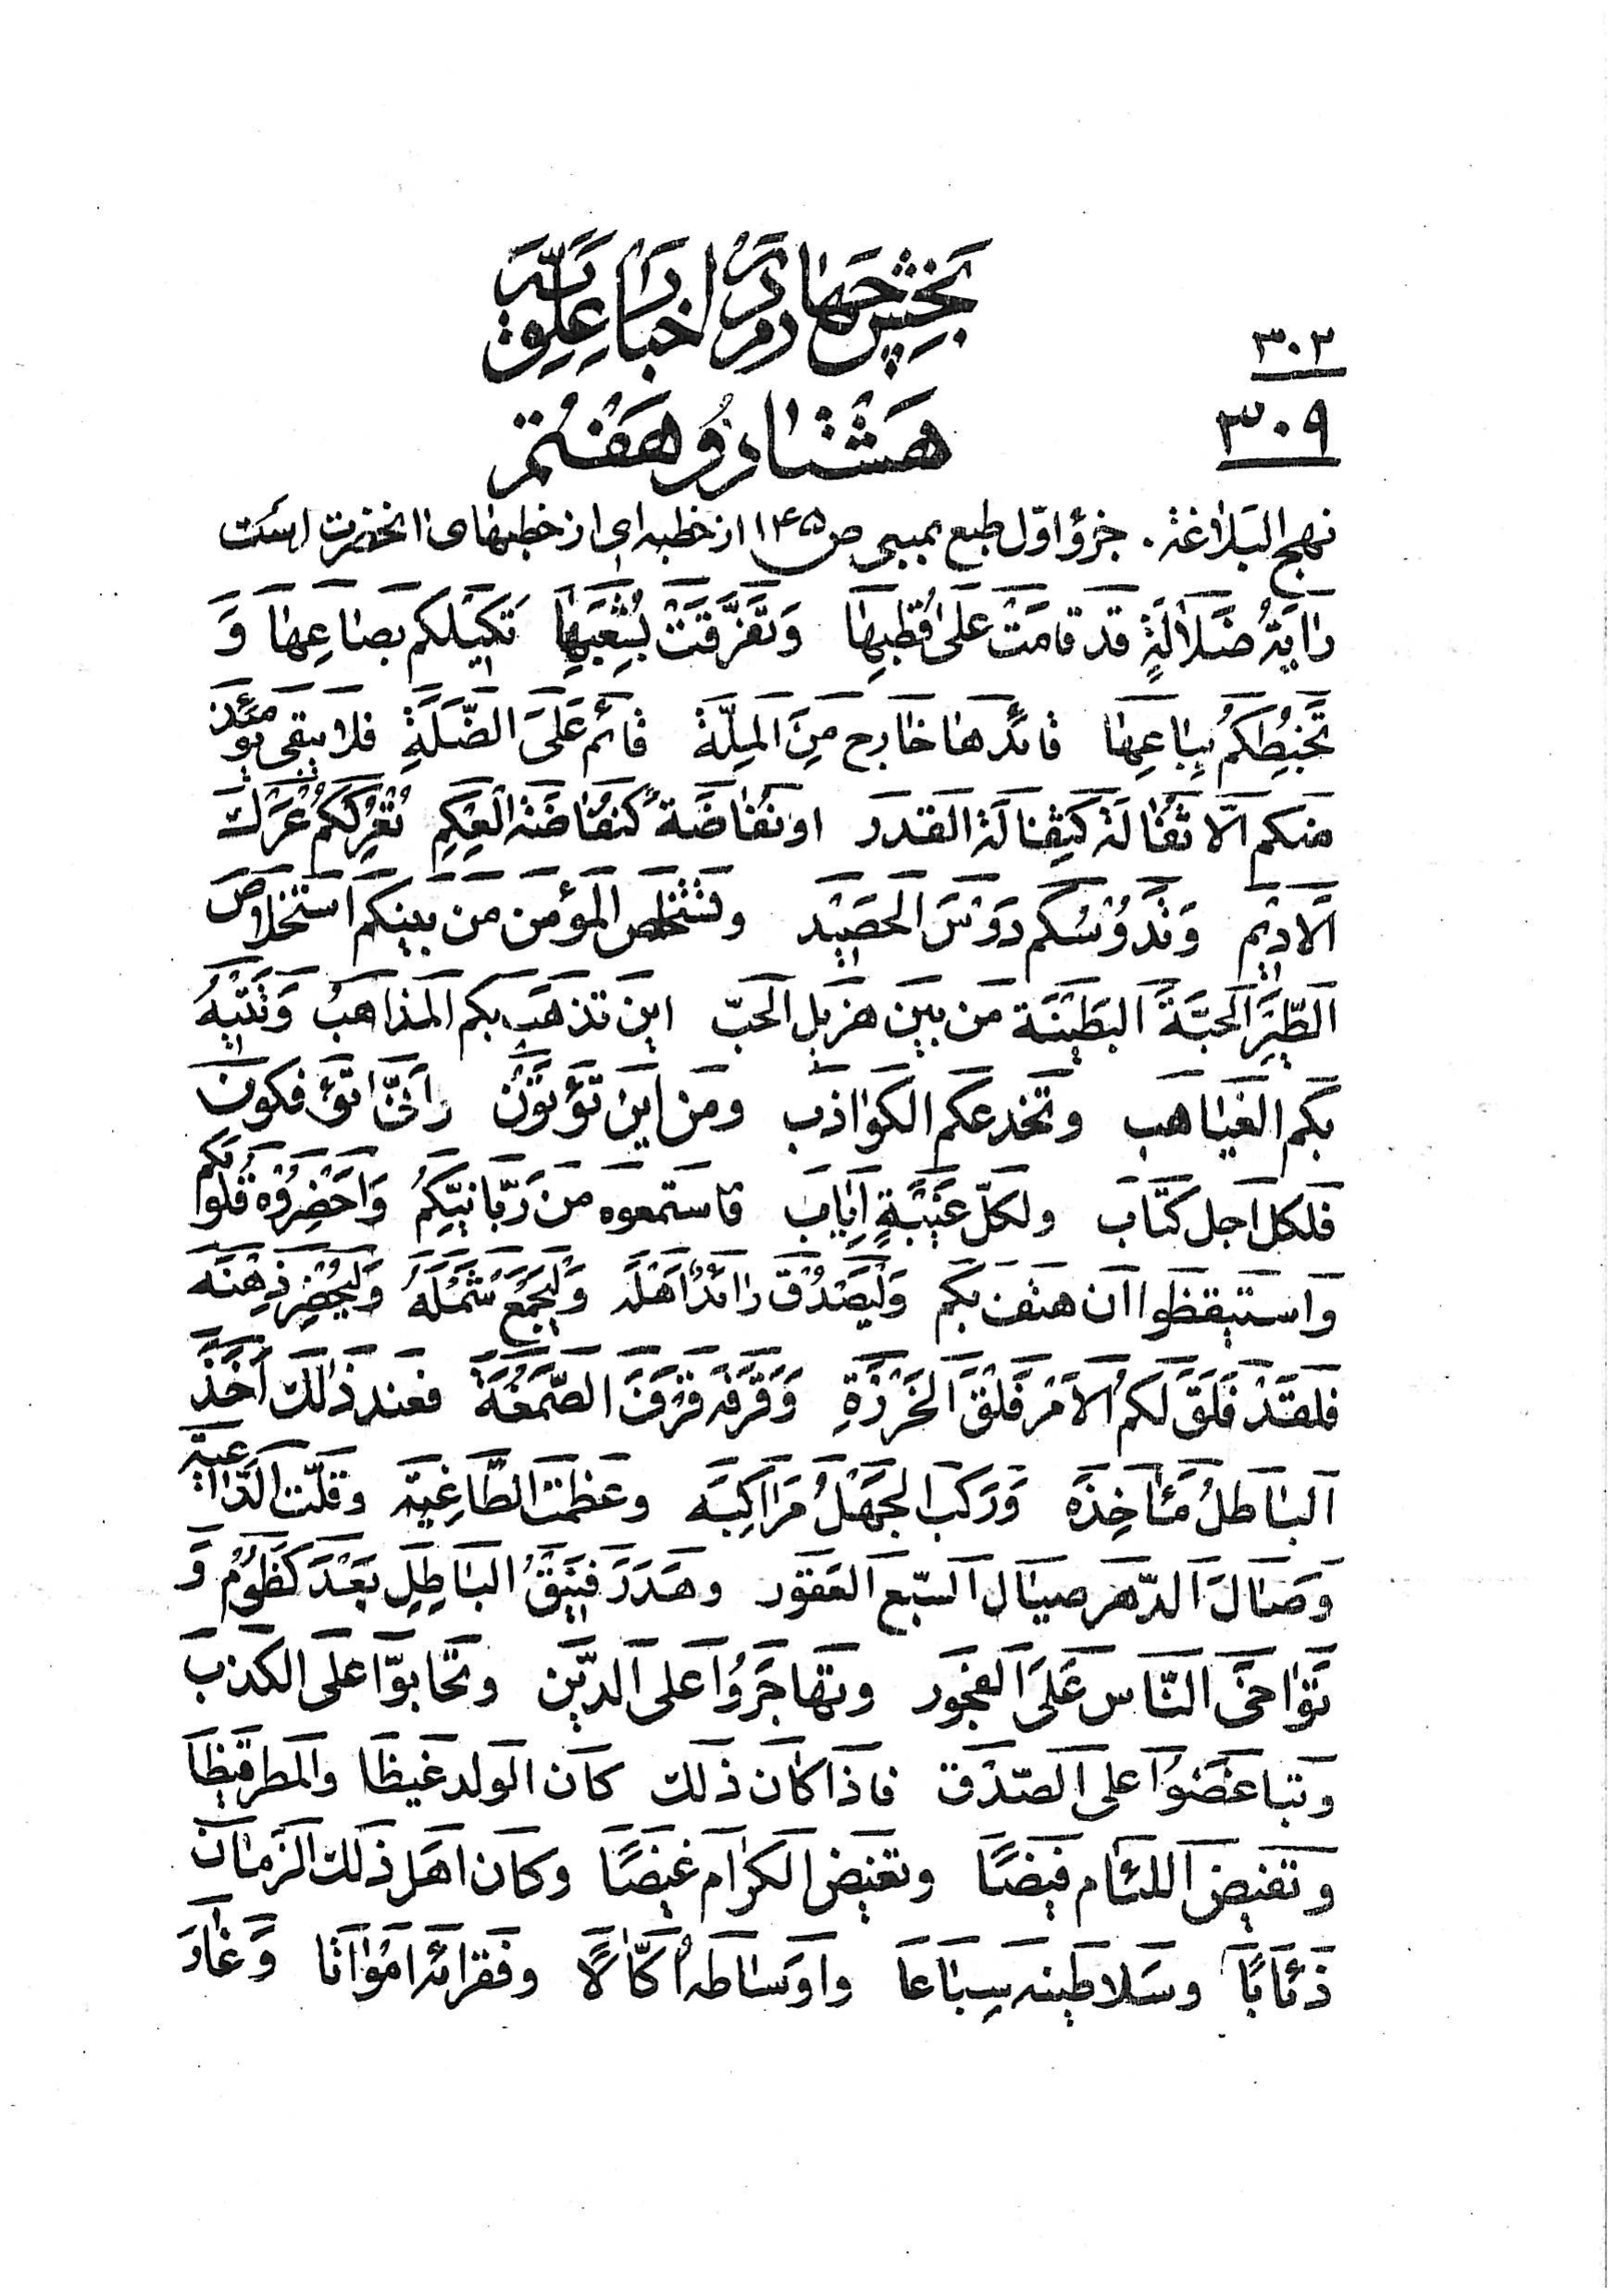 بخش چهارم در اخبار علویّه
۳۰۲
هشتاد و هفتم
۳۰۹
نهج البلاغة. جزؤ اوّل طبع بمبیی ص ۱۴۵ از خطبه ای از خطبهای انحضرت است
رٰایَةُ ضَلاٰلَةٍ قَد قامَتْ عَلیٰ قُطْبِهٰا وَ تَفَرَّقَتْ بِشُعَبِهٰا تَکیٖلکم بصٰاعِهٰا وَ
تَخبِطُکُم بِبٰاعِهٰا قائدهٰا خٰارج مِنَ المِلَّة قائم عَلَی الضَّلَّةِ فلا یبقیٰ یومئذ
منکم الّا ثُفٰالَة کثِفٰالَة القدر او نُفٰاضَة کنُفٰاضَة العِکمِ تَعْرککُم عَرْکَ
الادیٖم وَ تدُوسُکم دَوسَ الحصیٖد و تستخلص المؤمن من بینکم استخلاص
الطّیرِ الحبّةَ البطیٖنَة من بین هزیل الحبّ این تذهب بکم المذاهبُ وَ تَتیٖهُ
بکم الغیٰاهب و تخدعکم الکوٰاذب و من این تؤتونَ و انّیٰ تؤفکون
فلکل اجل کتاب ولکلّ غَیبَةٍ اِیٰاب فاستمعوه من رَبّانیّکُم وَ احضِرُوه قُلوا بکم
واستیقظوا ان هتف بکم وَلْیَصْدُقْ رٰائدٌ اَهلَه وَلْیَجْمَعْ شَمْلَهُ وَلْیُحْضِر ذِهْنَه
فلقَدْ فَلَقَ لَکُمُ الاَمْرَ فَلْقَ الخَرْزَةِ وَ قَرَفَه قَرْفَ الصَّمْغَة فعند ذٰلک اَخَذَ
البٰاطلُ مَئٰاخِذَه وَ رَکبَ الجَهْلُ مَرٰاکِبَه و عَظمَت الطّٰاغِیَة و قلّت الدّٰاعیة
وَ صٰالَ الدّهر صیٰال السّبع العقور و هَدَرَ فَنیٖقُ البٰاطِلِ بَعْدَ کظُومٍ وَ
تَوٰاخَی النّاس عَلَی الفجور و تهٰاجَرُوا علی الدّین و تحٰابوّا علی الکذب
و تبٰاغضَوُا علی الصّدْق فاذا کٰان ذلک کان الولد غَیظًا والمطر قیظًا
و تفیٖض اللئٰام فیضًا و تغیٖض الکرٰام غیضًا و کان اهل ذلک الزّمٰان
ذئابًا و سَلاطینه سِبٰاعًا و اوسٰاطه اُکّٰالًا و فقرائه اموٰاتا وَ غٰارَ